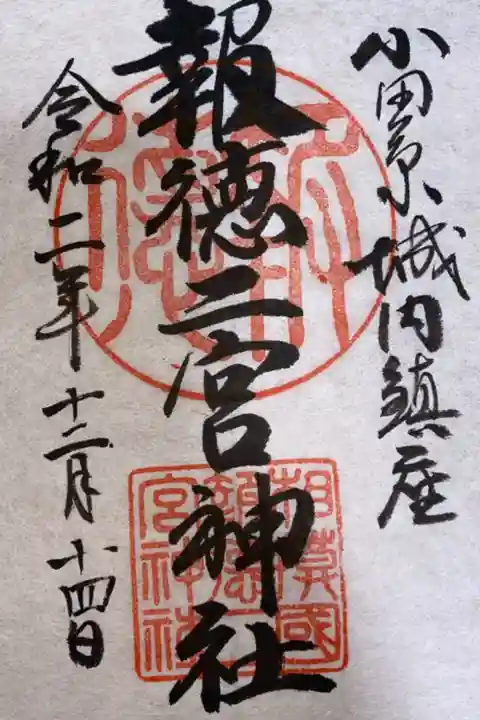 小田原城内鎮座
報徳二宮神社
令和二年十二月十四日
相模國
報徳二
宮神社